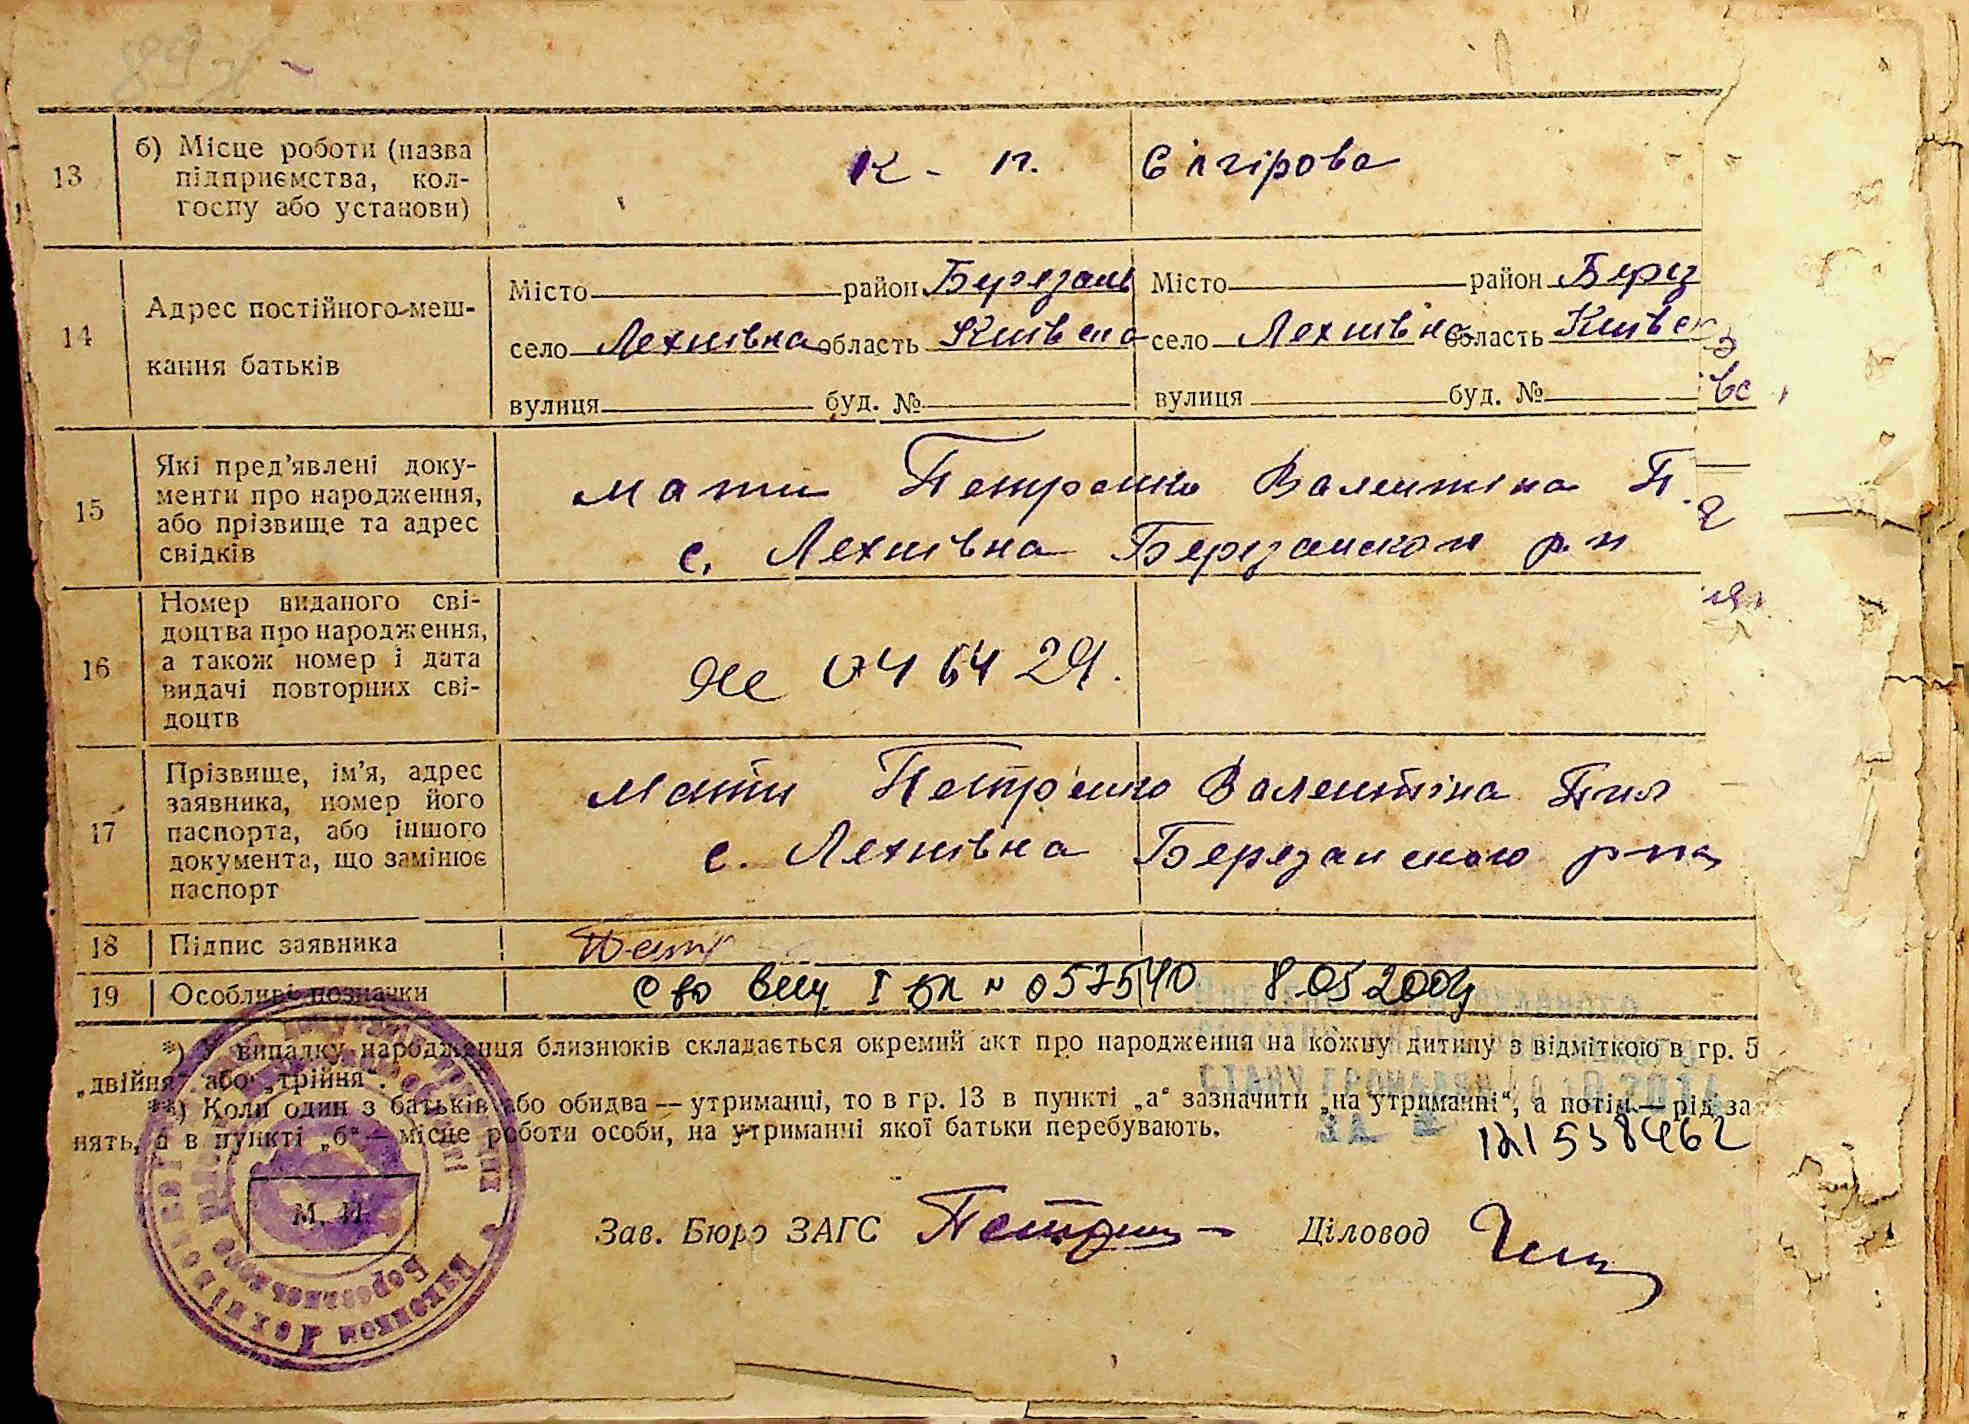 13
б) Місце роботи (назва
підприємства, кол-
госпу або установи)
к-п.
14
Адрес постійного меш-
кання батьків
Місто район Березань
село Лехнівка область Київська
вулиця буд. №
Місто район Берез
село Лехнівка область Київськ
вулиця буд. №
15
Які пред’явлені доку-
менти про народження,
або прізвище та адрес
свідків
мати Петренко Валентіна П.
с. Лехнівка Березанского р-н
16
Номер виданого сві-
доцтва про народження,
а також номер і дата
видачі повторних сві-
доцтв
17
Прізвище, ім’я, адрес
заявника, номер його
паспорта, або іншого
документа, що замінює
паспорт
Мати Петренко Валентіна Пил
с. Лехнівка Березанского р-на
18
Підпис заявника
Петр
19
Особливі позначки
І БК № 057540 8.05.2004
*) У випадку народження близнюків складається окремий акт про народження на кожну дитину з відміткою в гр. 5
„двійня“ або „трійня“.
**) Коли один з батьків або обидва — утриманці, то в гр. 13 в пункті „а“ зазначити „на утриманні“, а потім — рід за-
нять, а в пункті „б“ — місце роботи особи, на утриманні якої батьки перебувають.
М. П.
Зав. Бюро ЗАГС
Діловод